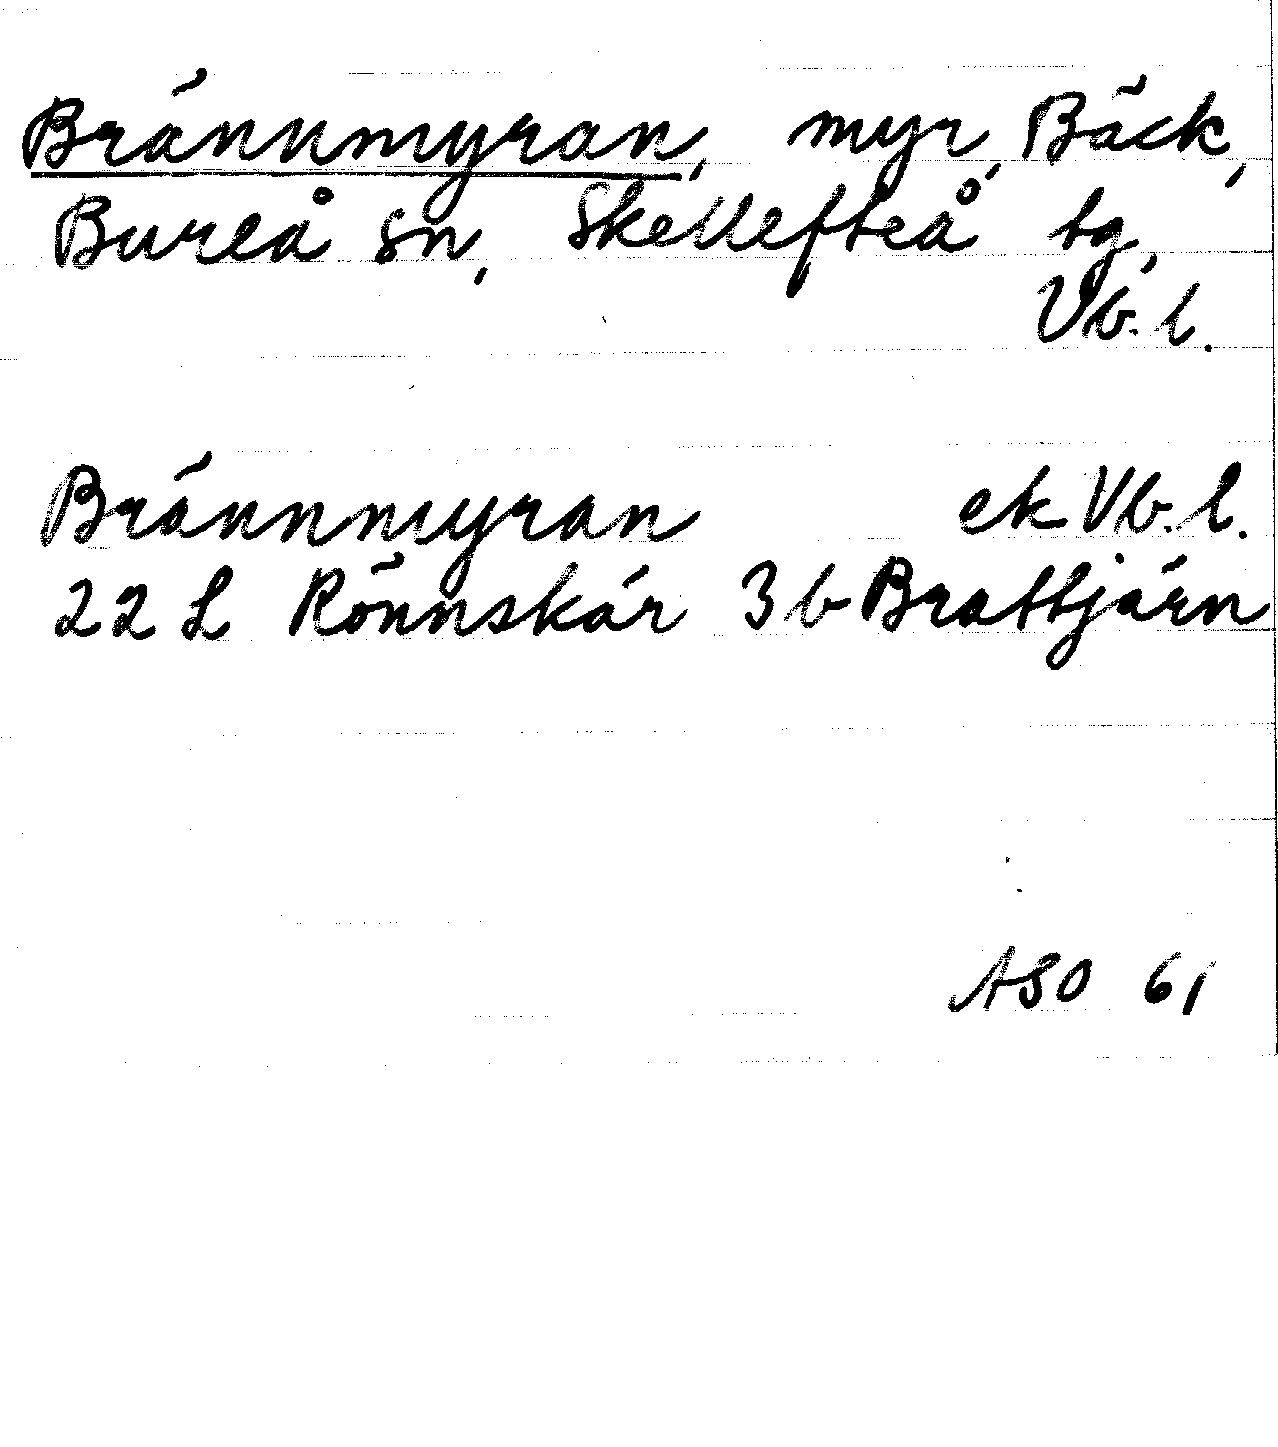 Brännmyran, myr, Bäck,
Bureå sn, Skellefteå tg,
Vb. l.
Brännmyran ek Vb. l.
22 L Rönnskär 3 b Brattjärn
ASO 61